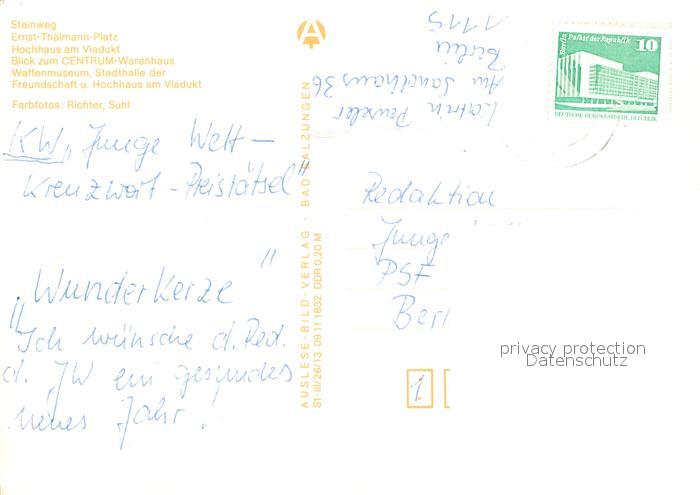 Steinweg
Ernst-Thälmann-Platz
Hochhaus am Viadukt
Blick zum CENTRUM-Warenhaus
Waffenmuseum, Stadthalle der
Freundschaft u. Hochhaus am Viadukt
Farbfotos: Richter, Suhl
KW „Junge Welt –
Kreuzwort-Preisrätsel"
„Wunderkerze"
Ich wünsche d. Red.
d. JW ein gesundes
neues Jahr!
AUSLESE-BILD-VERLAG · BAD SALZUNGEN
S1-III/26/13 09 11 1832 DDR 0,20 M
Katrin
Am Sandhaus 36
Berlin
1115
Berlin Palast der Republik 10
DEUTSCHE DEMOKRATISCHE REPUBLIK
Redaktion
Junge
PSF
Berl
1
privacy protection
Datenschutz